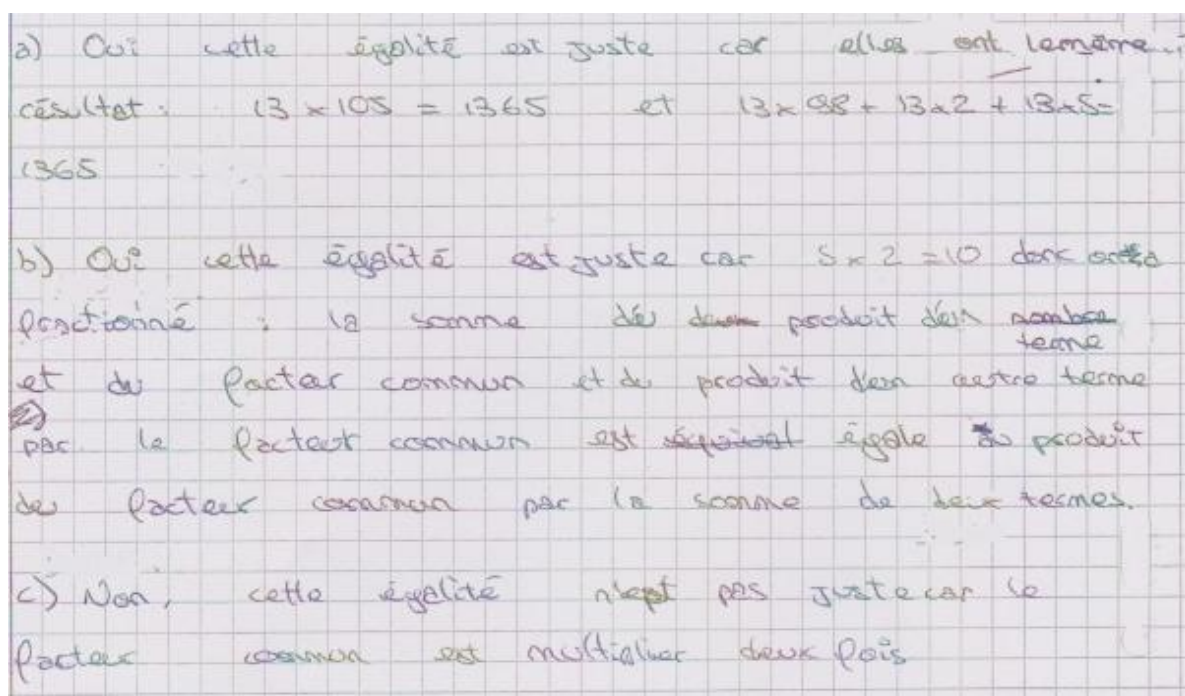 a) Oui cette égalité est juste car elles ont le même
résultat : 13 x 105 = 1365 et 13 x 98 + 13 x 2 + 13 x 5 =
1365
b) Oui cette égalité est juste car 5 x 2 = 10 donc
fonctionné : la somme du produit d'un terme
et du facteur commun et du produit d'un autre terme
par le facteur commun est égale au produit
du facteur commun par la somme de deux termes.
c) Non, cette égalité n'est pas juste car le
facteur commun est multiplier deux fois